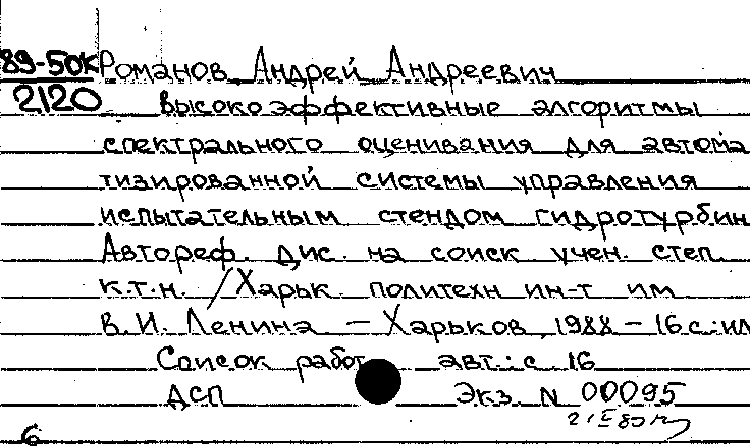 89-50к Романов Андрей Андреевич
2120 Высокоэффективные алгоритмы
спектрального оценивания для автома
тизированной системы управления
испытательным стендом гидротурбин
Автореф. дис. на соиск учен. степ.
к.т.н. / Харьк. политехн ин-т им
В.И. Ленина — Харьков, 1988 – 16 с.: ил
Список работ авт.: с. 16
ДСП Экз. N 00095
6